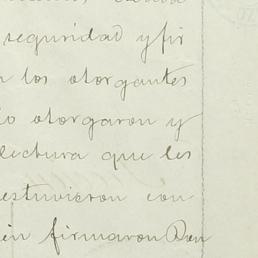 seguridad y fir
los otorgantes
otorgaron y
lectura que les
estuvieron con
firmaron Don